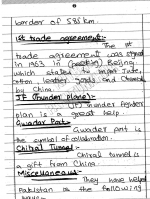 border of 595 km.
1st trade agreement:-
The 1st
trade agreement was signed
in 1963 in (peeking) Beijing,
which stated to import Jute,
cotton, leather goods and Chemicals
by China.
JF (Thunder plane):-
JF) thunder fighters
plan is a great help.
Gwadar Port:-
Gwadar port is
the symbol of collaboration.
Chitral Tunnel:-
Chitral tunnel is
a gift from China.
Miscellaneous:-
They have helped
Pakistan as the following
ways:-